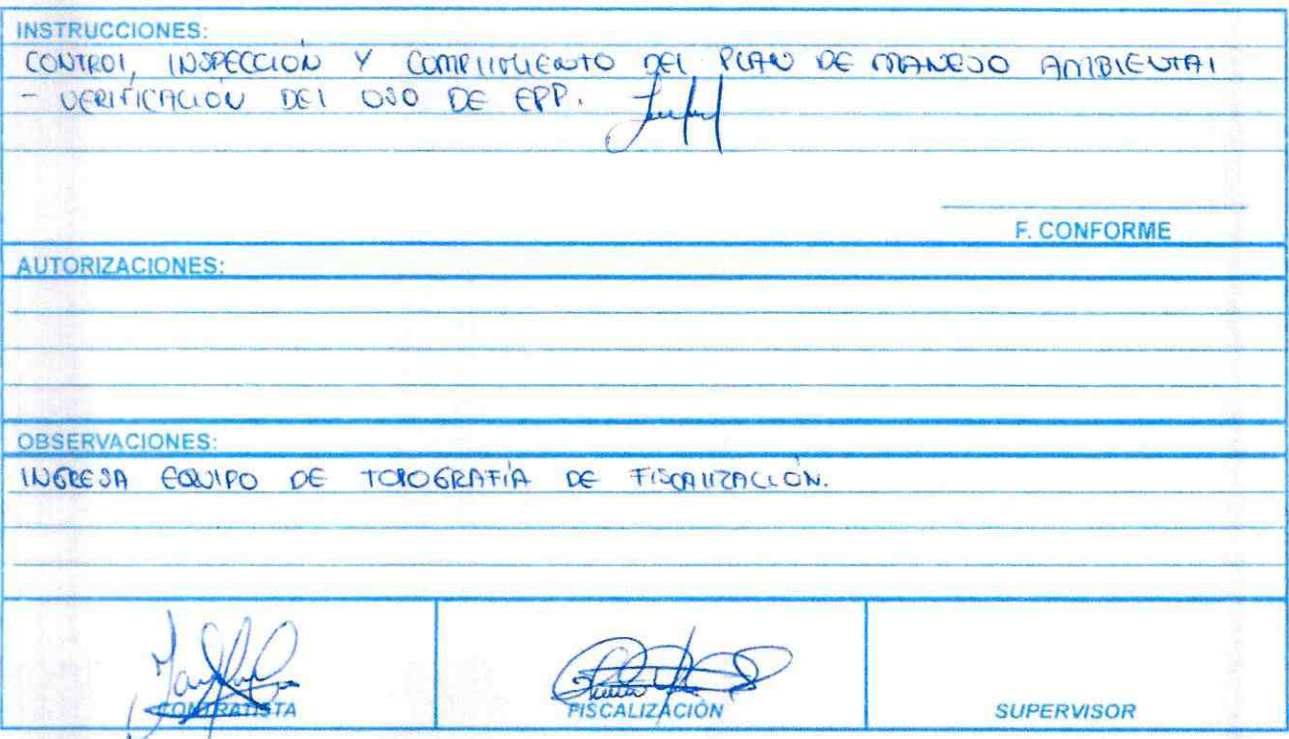 INSTRUCCIONES:
CONTROL, INSPECCIÓN Y CUMPLIMIENTO DEL PLAN DE MANEJO AMBIENTAL
- VERIFICACIÓN DEL USO DE EPP.
F. CONFORME
AUTORIZACIONES:
OBSERVACIONES:
INGRESA EQUIPO DE TOPOGRAFÍA DE FISCALIZACIÓN.
CONTRATISTA FISCALIZACIÓN SUPERVISOR